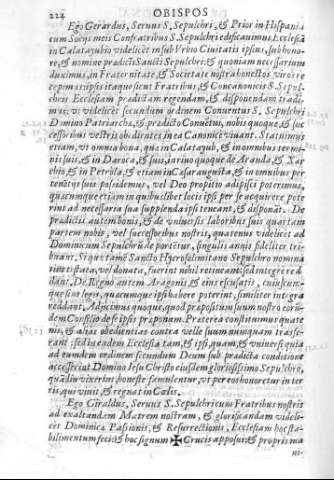 224 OBISPOS
Ego Gerardus, Seruus S. Sepulchri, & Prior in Hispania
cum Socijs meis Confratribus S. Sepulchri edificauimus Ecclesiã
in Calatayubio videlicet in sub Vrbio Ciuitatis ipsius, sub hono-
re, & nomine prædicti Sancti Sepulchri: & quoniam necessarium
duximus, in Fraternitate, & Societate nostra honestos viros re
cepimus ipsis itaque sicut Fratribus, & Concanonicis S. Sepul-
chri Ecclesiam prædictam regendam, & disponendam tradi-
mus: vt videlicet secundum ordinem Conuentus S. Sepulchri
Domino Patriarchæ, & prædicto Conuentui, nobis quoque, & suc
cessoribus vestris obedientes in ea Canonicè viuant. Statuimus
etiam, vt omnia bona, quæ in Calatayub, & in omnibus termi-
nis suis, & in Daroca, & suis, quoque de Aranda, & Xar
chio, & in Petrola, & etiam in Cæsaraugusta, & in omnibus per
tenẽtijs suis possidemus, vel Deo propitio adipisci poterimus,
quæcumque etiam in quibuslibet locis ipsi per se acquirere pote
rint ad necessaria sua supplenda ipsi teneant, & disponãt. De
prædictis autem bonis, & de vniuersis laboribus suis quartam
partem nobis, vel successoribus nostris, quatenus videlicet ad
Dominicum Sepulchrũ deportetur, singulis annis fideliter tri-
buant. Si qua tamẽ Sancto Hyerosolimitano Sepulchro nomina
tim testata, vel donata, fuerint nobil retineant: sed integrè red
dant. De Regno autem Aragonis, & eius escusatis, cuiuscum-
que sint legis, quæcumque ipsi habere poterint, similiter integra
reddant. Adijcimus quoque quod præpositum suum nostro eorũ-
dem Consilio de se ipsis præponam. Præterea constituimus quate
nis, & alias obedientias contra velle suum nunquam trasfe-
rant: sed in eadem Ecclesia tam, & ipsi quam, & vniuersi qui a
ad eumdem ordinem secundum Deum sub prædicta conditione
accesserint Domino Iesu Christo eiusdem gloriosissimo Sepulchro,
quãdiu vixerint, honestè famulentur, vt per eos honoretur in ter-
ris, qui viuit, & regnat in Cælis.
Ego Giraldus, Seruus S. Sepulchri cum Fratribus nostris
ad exaltandam Matrem nostram, & glorificandam videli-
cet Dominicæ Passionis, & Resurrectionis, Ecclesiam hoc sta-
bilimentum feci & hoc signum ✠ Crucis apposui: & propris ma
ni-